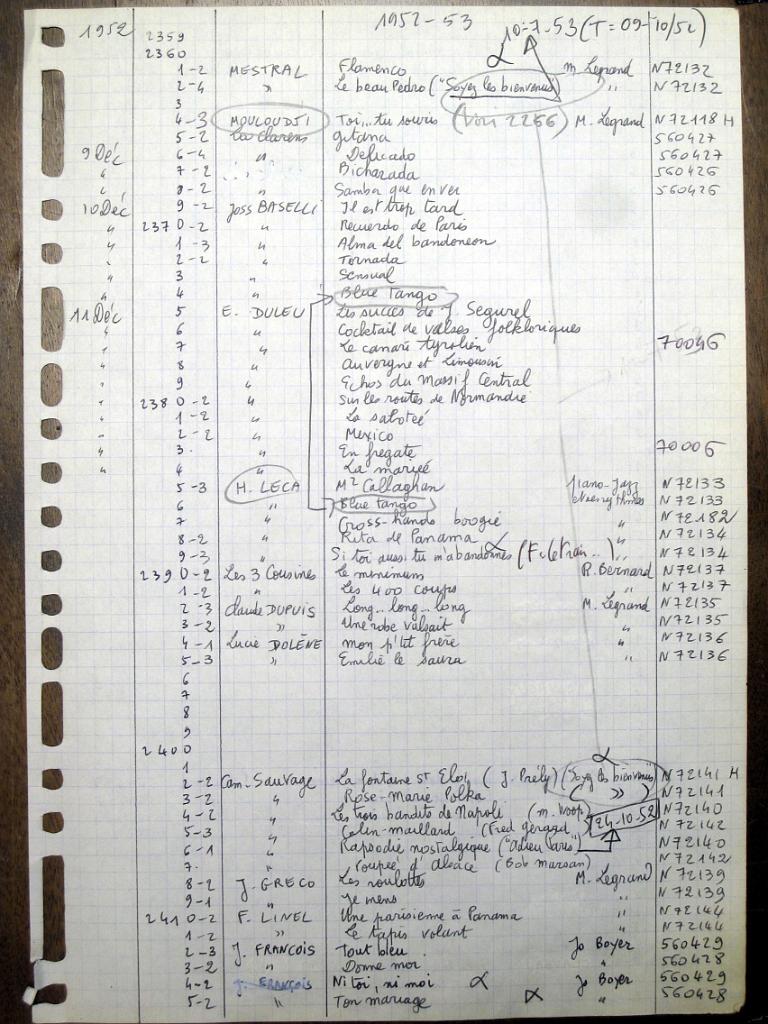 1952 1952-53 10-7-53 (T = 09-10/52)
2359
2360
1-2 MESTRAL Flamenco M. Legrand N72132
2-4 " Le beau Pedro ("Soyez les bienvenus") " N72132
3
4-3 MOULOUDJI Toi...tu souris (Voir 2266) M. Legrand N72118 H
5-2 Clarens gitana 560427
9 Déc 6-4 " Delicado 560427
" 7-2 Bicharada 560426
" 8-2 " Samba que en ver 560426
10 Déc 9-2 Joss BASELLI Il est trop tard
" 2370-2 " Recuerdo de Paris
" 1-3 " Alma del bandoneon
" 2-2 " Tornada
" 3 " Sensual
" 4 " Blue Tango
11 Déc 5 E. DULEU Les succès de J. Segurel
" 6 " Cocktail de valses folkloriques
" 7 " Le canari tyrolien 70046
" 8 " Auvergne et Limousin
" 9 " Echos du Massif Central
" 2380-2 " Sur les routes de Normandie
" 1-2 " La sabotée
" 2-2 " Mexico
" 3. " En fregate 70006
" 4 " La mariée
5-3 H. LECA Mr Callaghan Piano-Jazz N72133
6 " Blue Tango N72133
7 " Cross-hands boogie " N72182
8-2 " Rita de Panama " N72134
9-3 " Si toi aussi tu m'abandonnes (F. le train...) " N72134
2390-2 Les 3 Cousines Le minimum R. Bernard N72137
1-2 " Les 400 coups " N72137
2-3 Claude DUPUIS Long...long...long M. Legrand N72135
3-2 " Une robe valsait " N72135
4-1 Lucie DOLÈNE mon p'tit frère " N72136
5-3 " Emilie le " N72136
6
7
8
9
2400
1
2-2 Cam. Sauvage La fontaine St Eloi (J. Prély) (Soyez les bienvenus) N72141 H
3-2 " Rose-Marie Polka ( " ) N72141
4-2 " Les trois bandits de Napoli (M. Woop) N72140
5-3 " Colin-maillard (Fred Gérard) 24-10-52 N72142
6-1 " Rapsodie nostalgique ("Adieu Paris") N72140
7. " Poupée d'alsace (Bob marsan) N72142
8-2 J. GRECO Les roulottes M. Legrand N72139
9-1 " Je mens " N72139
2410-2 F. LINEL Une parisienne à Panama " N72144
1-2 " Le tapis volant " N72144
2-3 J. FRANCOIS Tout bleu. Jo Boyer 560429
3-2 " Donne moi " 560428
4-2 J. FRANÇOIS Ni toi, ni moi Jo Boyer 560429
5-2 " Ton mariage " 560428